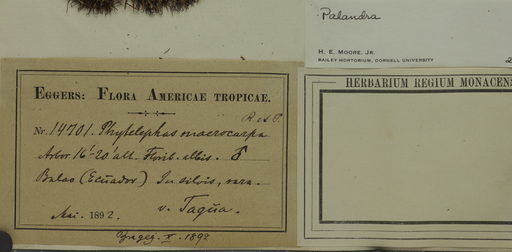 Palandra
H. E. MOORE, JR.
BAILEY HORTORIUM, CORNELL UNIVERSITY
HERBARIUM REGIUM MONACENS
EGGERS: FLORA AMERICAE TROPICAE.
R et P.
Nr. 14701. Phytelephas macrocarpa
Arbor 16'-20' alt. Florib. albis. ♂
Balao (Ecuador) In silvis, rara.
v. Tagua.
Mai. 1892.
X. 1892